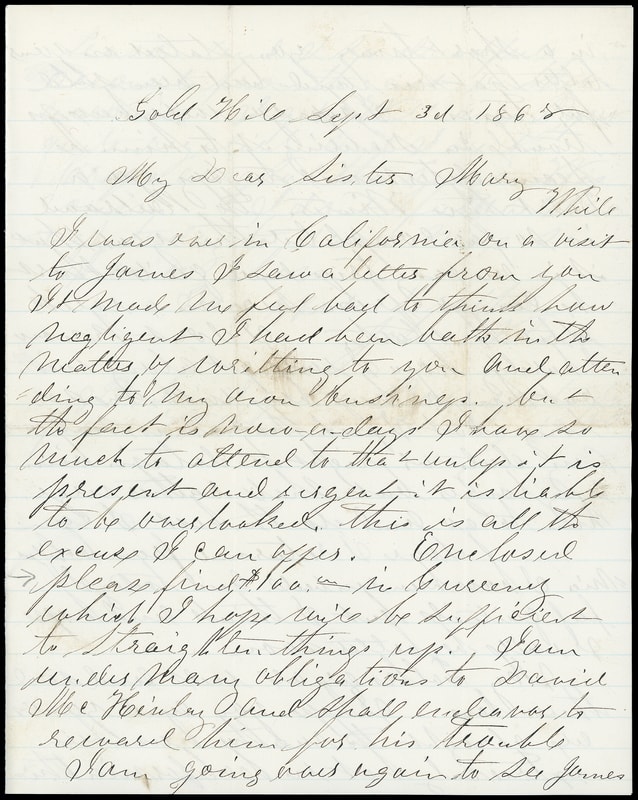 Gold Hill Sept 3d 1868
My Dear Sister Mary
While
I was over in California on a visit
to James I saw a letter from you
It made me feel bad to think how
negligent I had been both in the
matter of writting to you and atten
ding to my own business. but
the fact is now-a-days I have so
much to attend to that unless it is
present and urgent it is liable
to be overlooked. this is all the
excuse I can offer. Enclosed
please find $100.00 in Currency
which I hope will be sufficient
to straighten things up. I am
under many obligations to David
McKinley and shall endeavor to
reward him for his trouble
I am going over again to see James